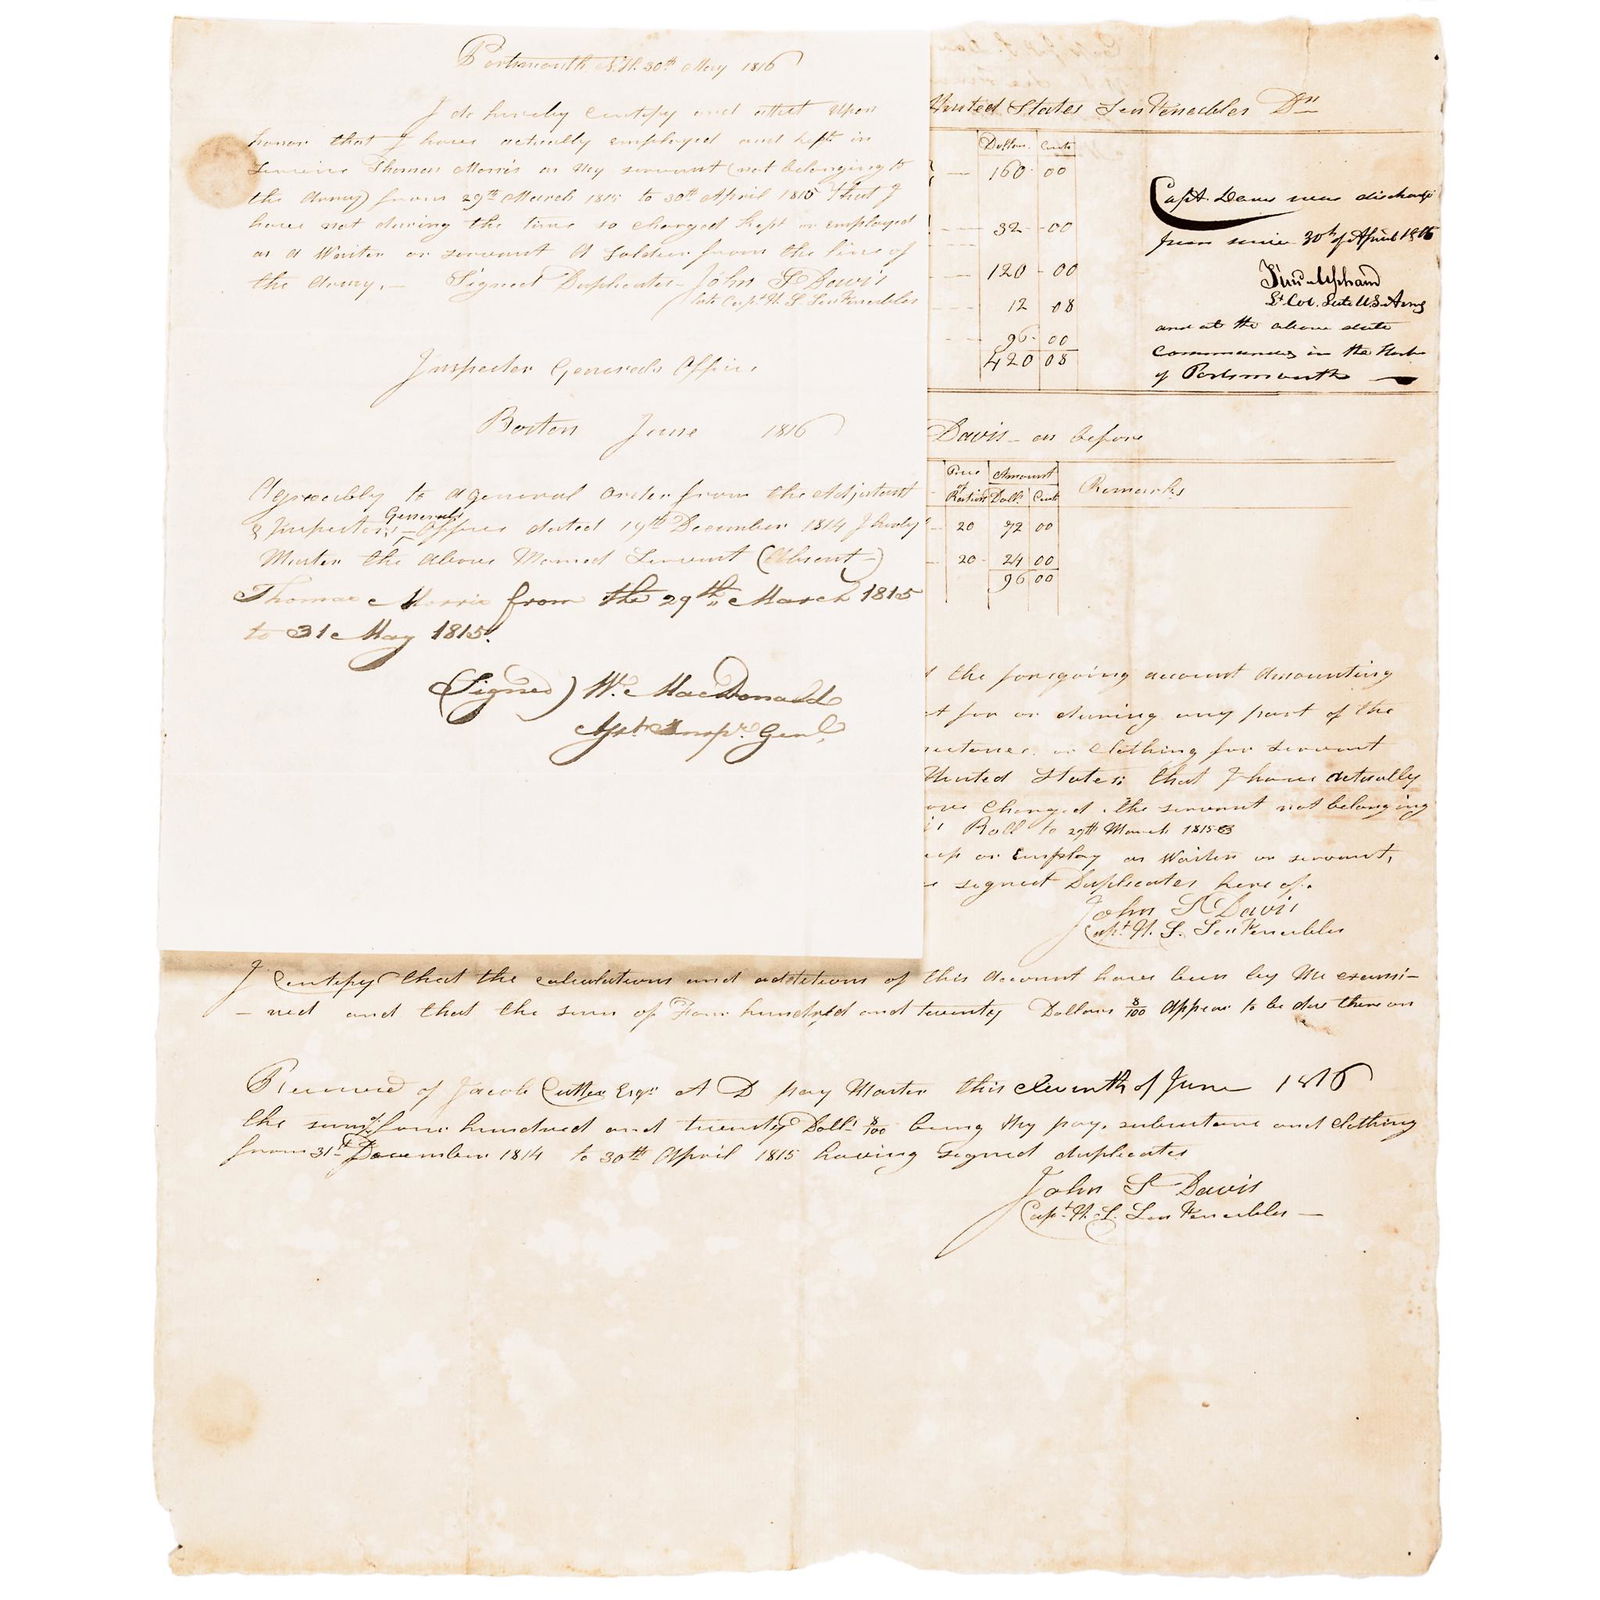 Portsmouth N.H. 30th May 1816
I do hereby Certify and attest upon
honor that I have actually employed and kept in
Service Thomas Morris as my servant (not belonging to
the Army) from 29th March 1815 to 30th April 1815 that I
have not during the time so charged kept or employed
as a Waiter or servant A Soldier from the line of
the Army. — Signed Duplicates — John S Davis
late Capt U. S. Sea Fencibles
Inspector General's Office
Boston June 1816
Agreeably to a general order from the Adjutant
& Inspector Generals Office dated 19th December 1814 I hereby
Muster the above Named Servant (Absent)
Thomas Morris from the 29th March 1815
to 31 May 1815.
(Signed) Wm MacDonald
Asst Inspr Genl.
United States Sea Fencibles Dr
Dollars Cents
160 00
32 00
120 00
12 08
96 00
420 08
Capt. Davis was discharged
from service 30th of April 1815
Lt Col. late U.S. Army
and at the above date
commanding in the Harbor
of Portsmouth
Davis — as before
Price of Rations Amount
Dolls Cents Remarks
20 72 00
20 24 00
96 00
the foregoing account amounting
for or during any part of the
or clothing for servant
United States; that I have actually
Charged, the servant not belonging
Roll to 29th March 1815
or Employ as Waiter or servant,
signed Duplicates here of.
John S Davis
Capt. U. S. Sea Fencibles
I Certify that the calculations and additions of this Account have been by me exami-
- ned and that the sum of Four hundred and twenty Dollars 8/100 Appear to be due thereon
Received of Jacob Cutter Esqr A D pay Master this eleventh of June 1816
the sum of four hundred and twenty Dolls 8/100 being my pay, subsistance and Clothing
from 31st December 1814 to 30th April 1815 having signed duplicates
John S Davis
Capt. U. S. Sea Fencibles —